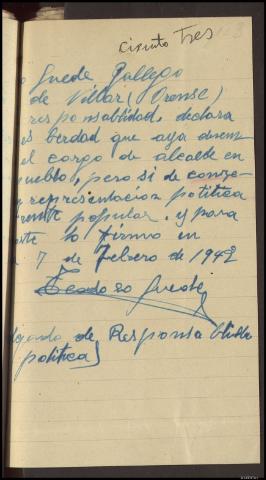 Ciento Tres
o Guede Gallego
de Villar (Orense)
responsablidad, declara
es berdad que aya desem
el cargo de alcalde en
pueblo, pero si de conze-
y representacion politica
frente popular. y para
lo firmo en
a 7 de Febrero de 1942
Teodoro Guede
lgado de Responsablida
politica